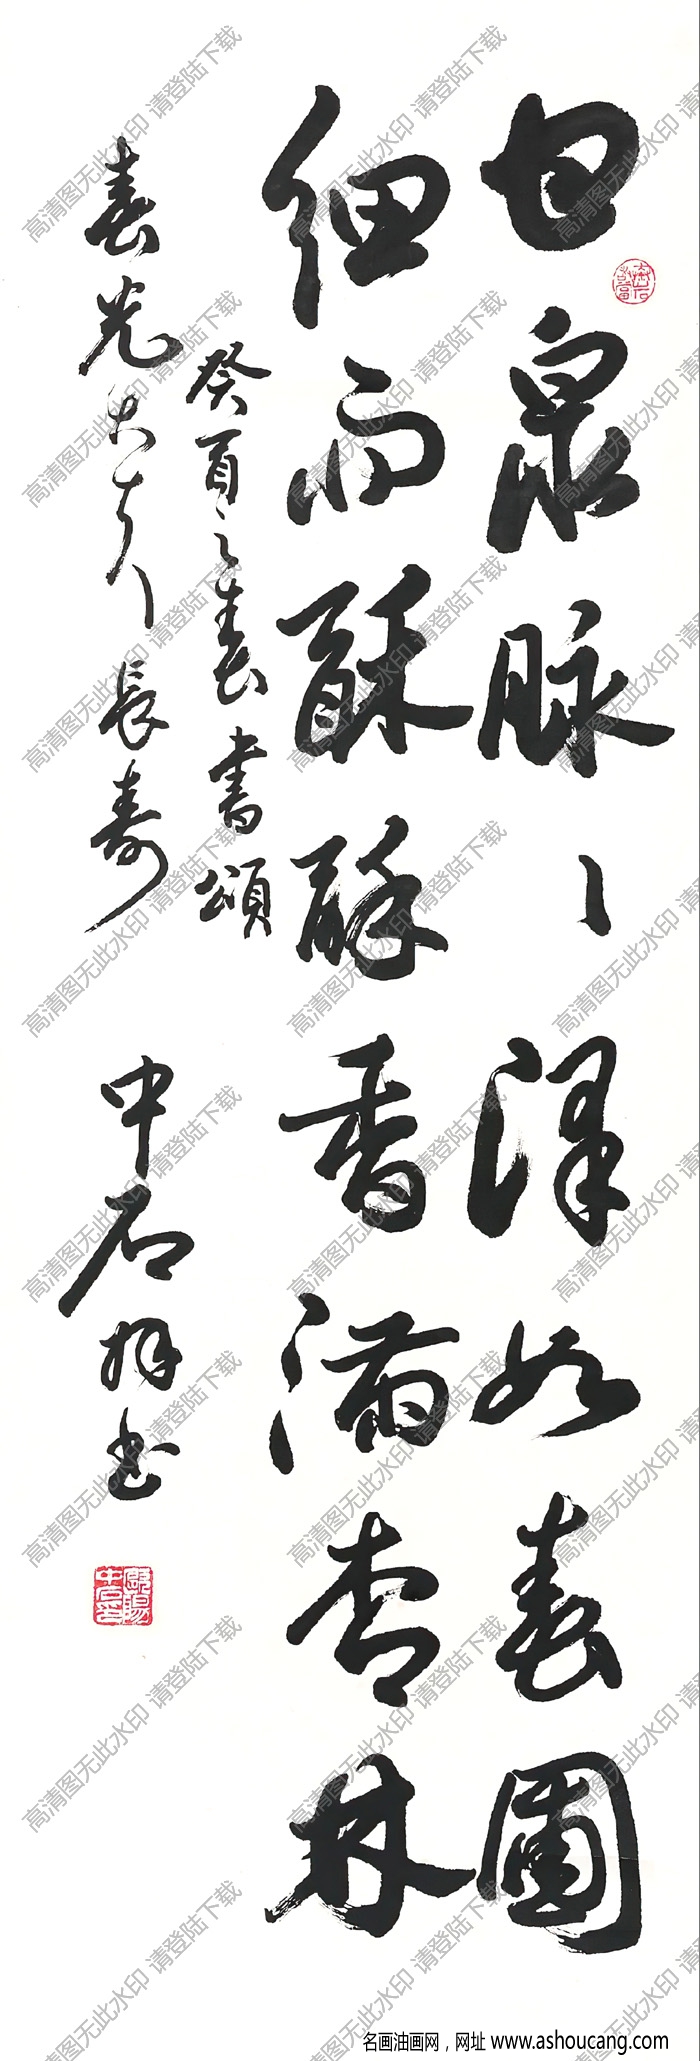 甘泉脉〻泽如春圃
细雨酥酥香满杏林
癸酉之春书颂
春光大夫长寿
中石拜书
欧阳中石印
高清图无此水印 请登陆下载
名画油画网，网址 www.ashoucang.com